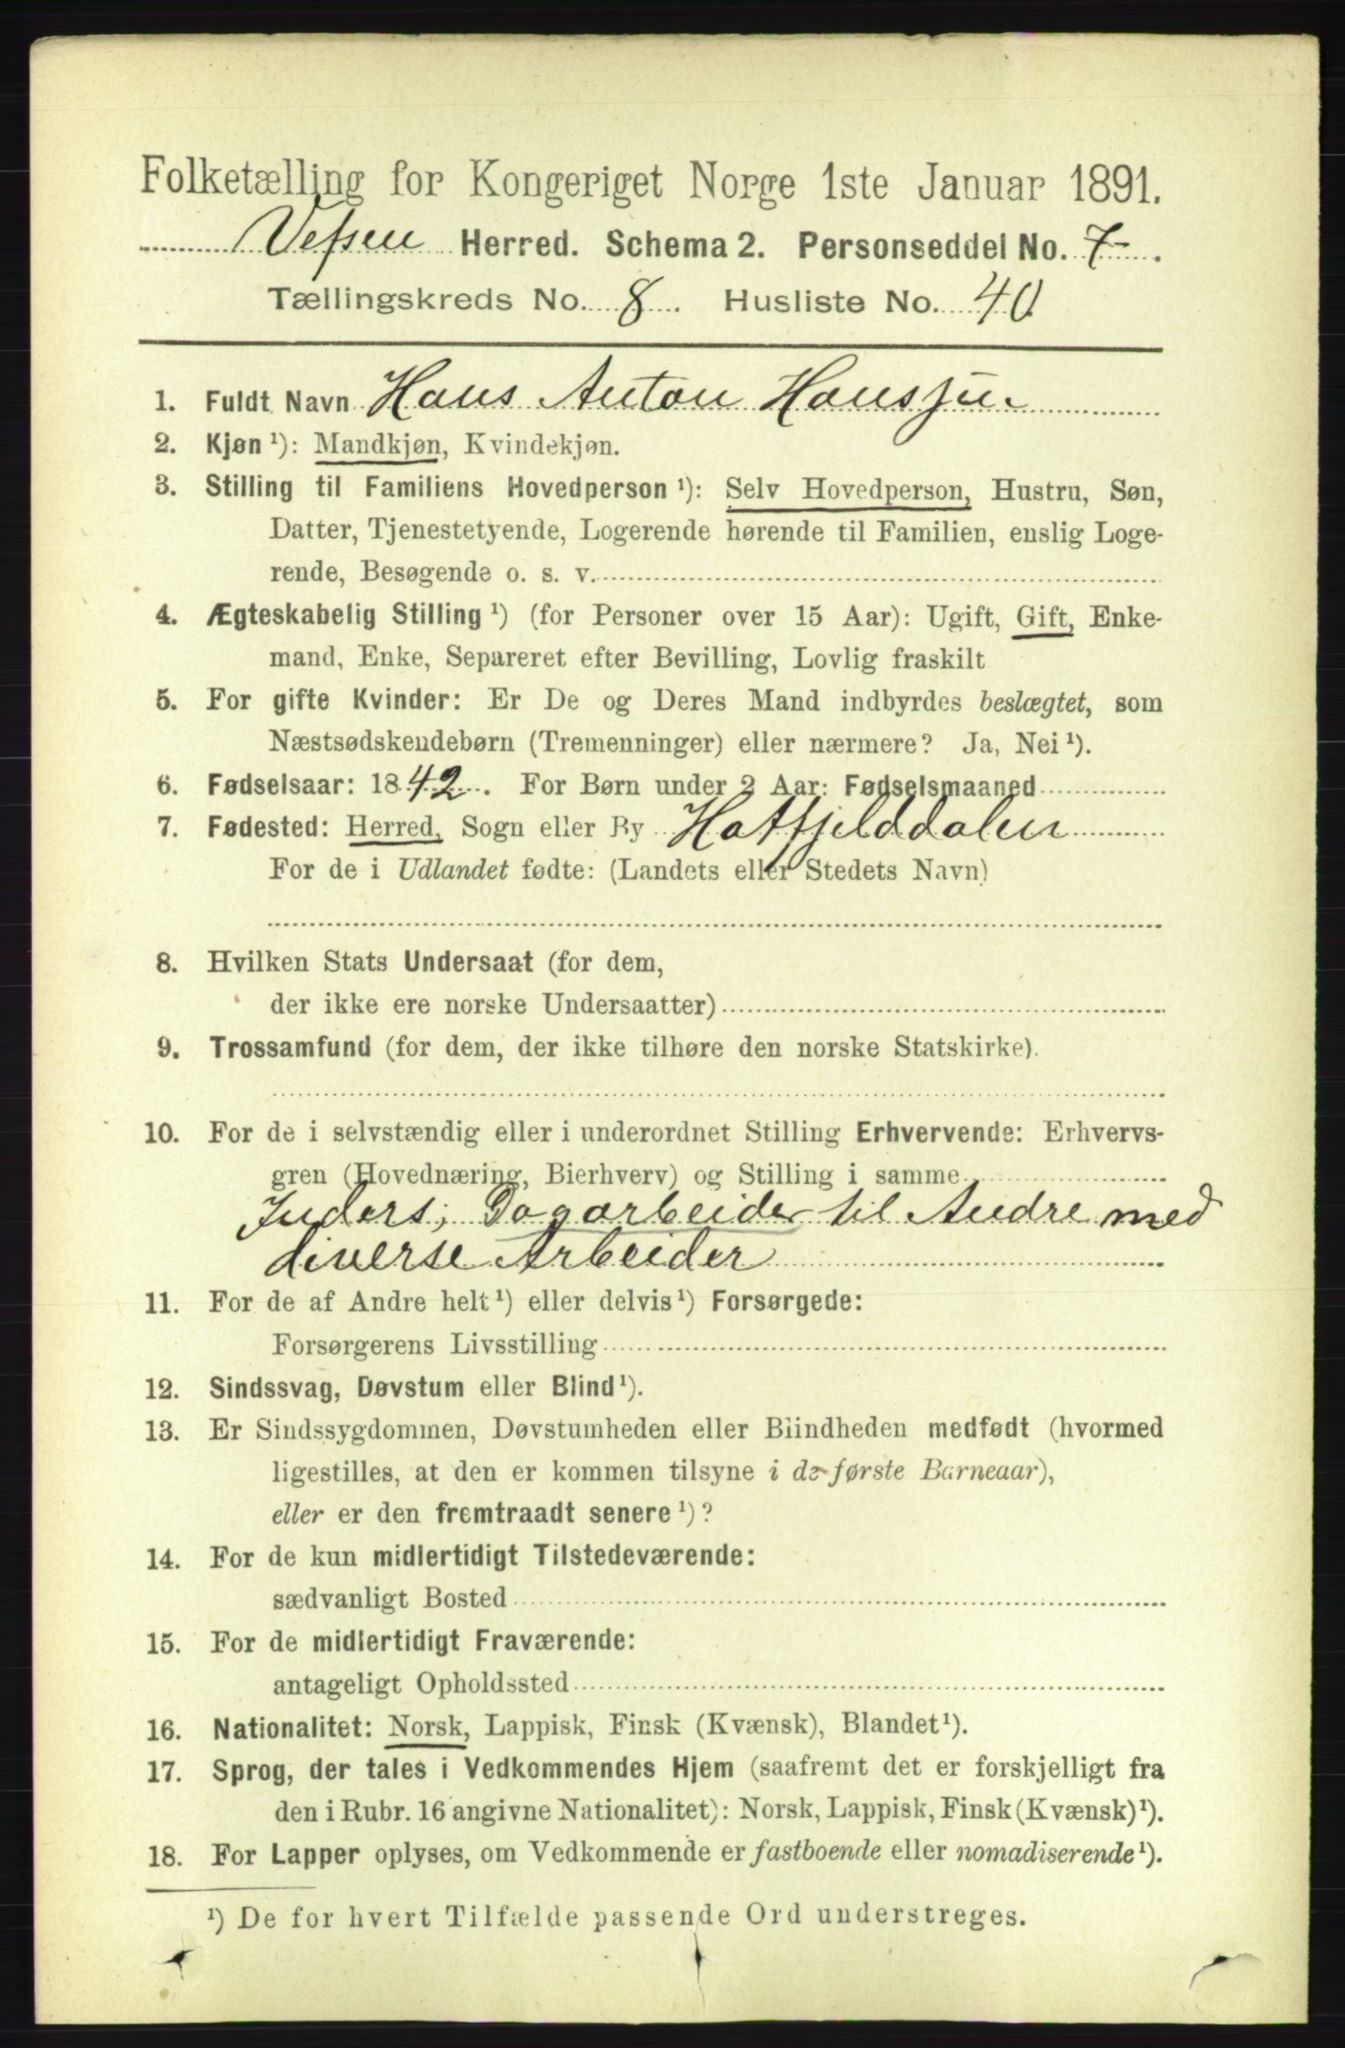 Folketælling for Kongeriget Norge 1ste Januar 1891.
Vefsen Herred. Schema 2. Personseddel No. 7
Tællingskreds No. 8. Husliste No. 40
1. Fuldt Navn Hans Anton Hanssen
2. Kjøn ¹): Mandkjøn, Kvindekjøn.
3. Stilling til Familiens Hovedperson ¹): Selv Hovedperson, Hustru, Søn,
Datter, Tjenestetyende, Logerende hørende til Familien, enslig Loge-
rende, Besøgende o. s. v.
4. Ægteskabelig Stilling ¹) (for Personer over 15 Aar): Ugift, Gift, Enke-
mand, Enke, Separeret efter Bevilling, Lovlig fraskilt
5. For gifte Kvinder: Er De og Deres Mand indbyrdes beslægtet, som
Næstsødskendebørn (Tremenninger) eller nærmere? Ja, Nei ¹).
6. Fødselsaar: 1842. For Børn under 2 Aar: Fødselsmaaned
7. Fødested: Herred, Sogn eller By Hatfjelddalen
For de i Udlandet fødte: (Landets eller Stedets Navn)
8. Hvilken Stats Undersaat (for dem,
der ikke ere norske Undersaatter)
9. Trossamfund (for dem, der ikke tilhøre den norske Statskirke).
10. For de i selvstændig eller i underordnet Stilling Erhvervende: Erhvervs-
gren (Hovednæring, Bierhverv) og Stilling i samme
Inders, Dagarbeider til Andre med
diverse Arbeider
11. For de af Andre helt ¹) eller delvis ¹) Forsørgede:
Forsørgerens Livsstilling
12. Sindssvag, Døvstum eller Blind ¹).
13. Er Sindssygdommen, Døvstumheden eller Blindheden medfødt (hvormed
ligestilles, at den er kommen tilsyne i de første Barneaar),
eller er den fremtraadt senere ¹)?
14. For de kun midlertidigt Tilstedeværende:
sædvanligt Bosted
15. For de midlertidigt Fraværende:
antageligt Opholdssted
16. Nationalitet: Norsk, Lappisk, Finsk (Kvænsk), Blandet ¹).
17. Sprog, der tales i Vedkommendes Hjem (saafremt det er forskjelligt fra
den i Rubr. 16 angivne Nationalitet): Norsk, Lappisk, Finsk (Kvænsk) ¹).
18. For Lapper oplyses, om Vedkommende er fastboende eller nomadiserende ¹).
¹) De for hvert Tilfælde passende Ord understreges.